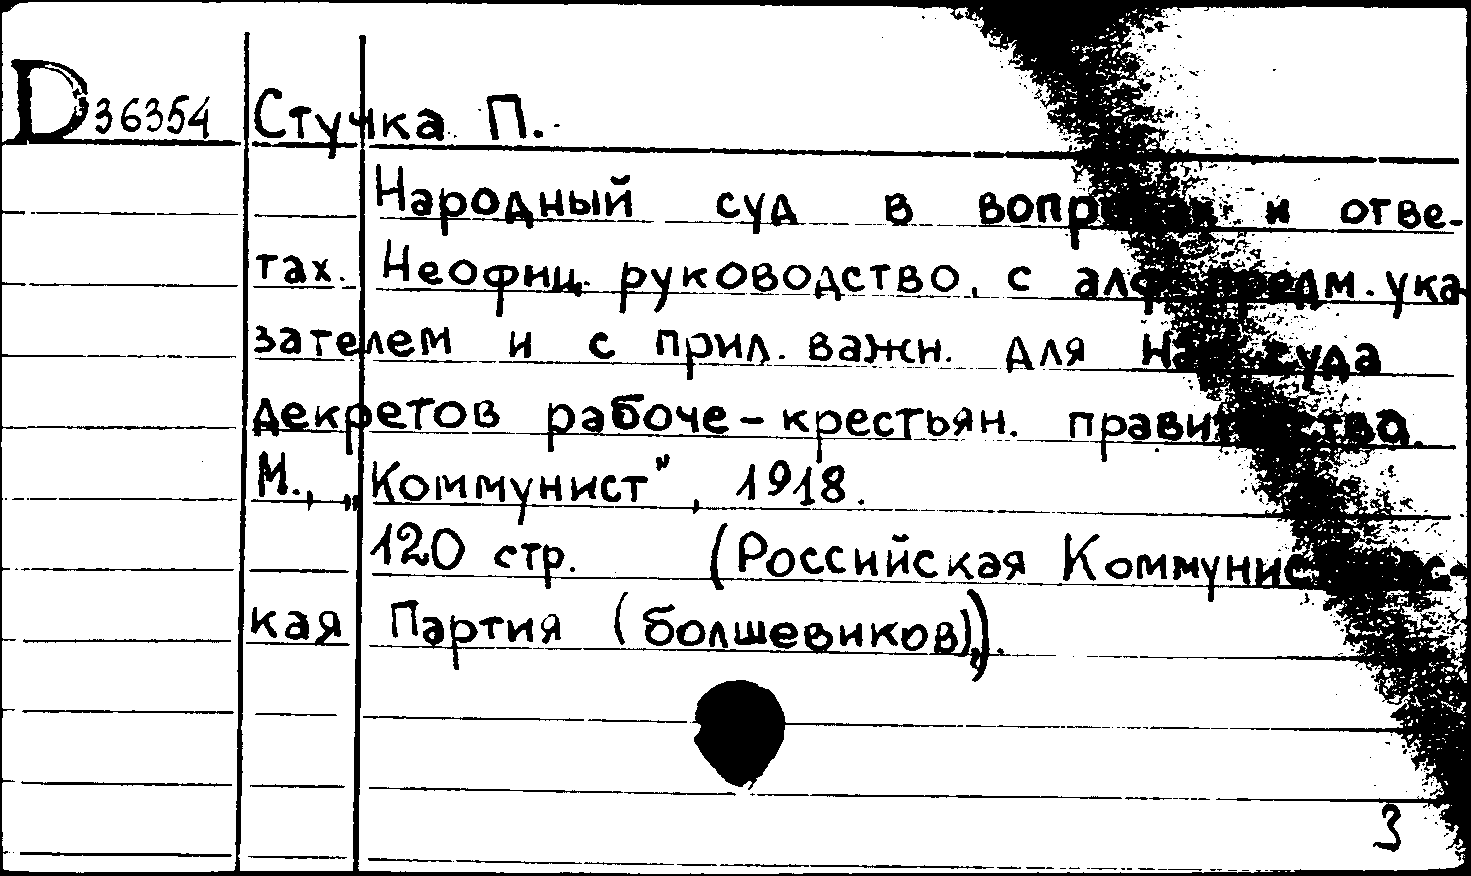 D36354 Стучка П.
Народный суд в вопросах и отве-
тах. Неофиц. руководство, с алф. предм. ука-
зателем и с прил. важн. для нар. суда
декретов рабоче-крестьян. правительства.
М., „Коммунист", 1918.
120 стр. (Российская Коммунистичес-
кая Партия (болшевиков)).
3